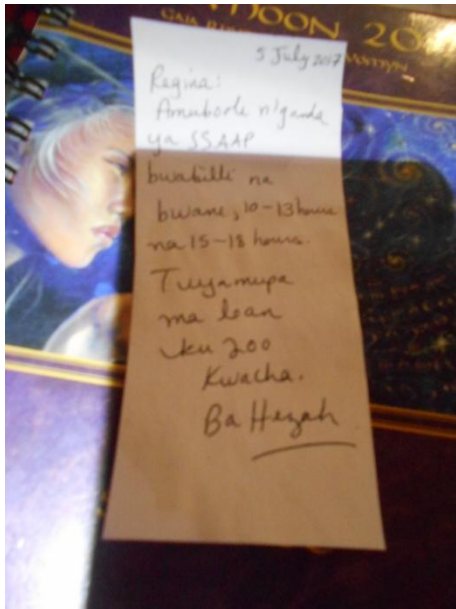 MOON 20
GAIA
5 July 2017
Regina:
Amubole n'ganda
ya SSAAP
bwabilli na
bwane, 10-13 hours
na 15-18 hours.
Tuyamupa
ma loan
ku 200
Kwacha.
Ba Hezah